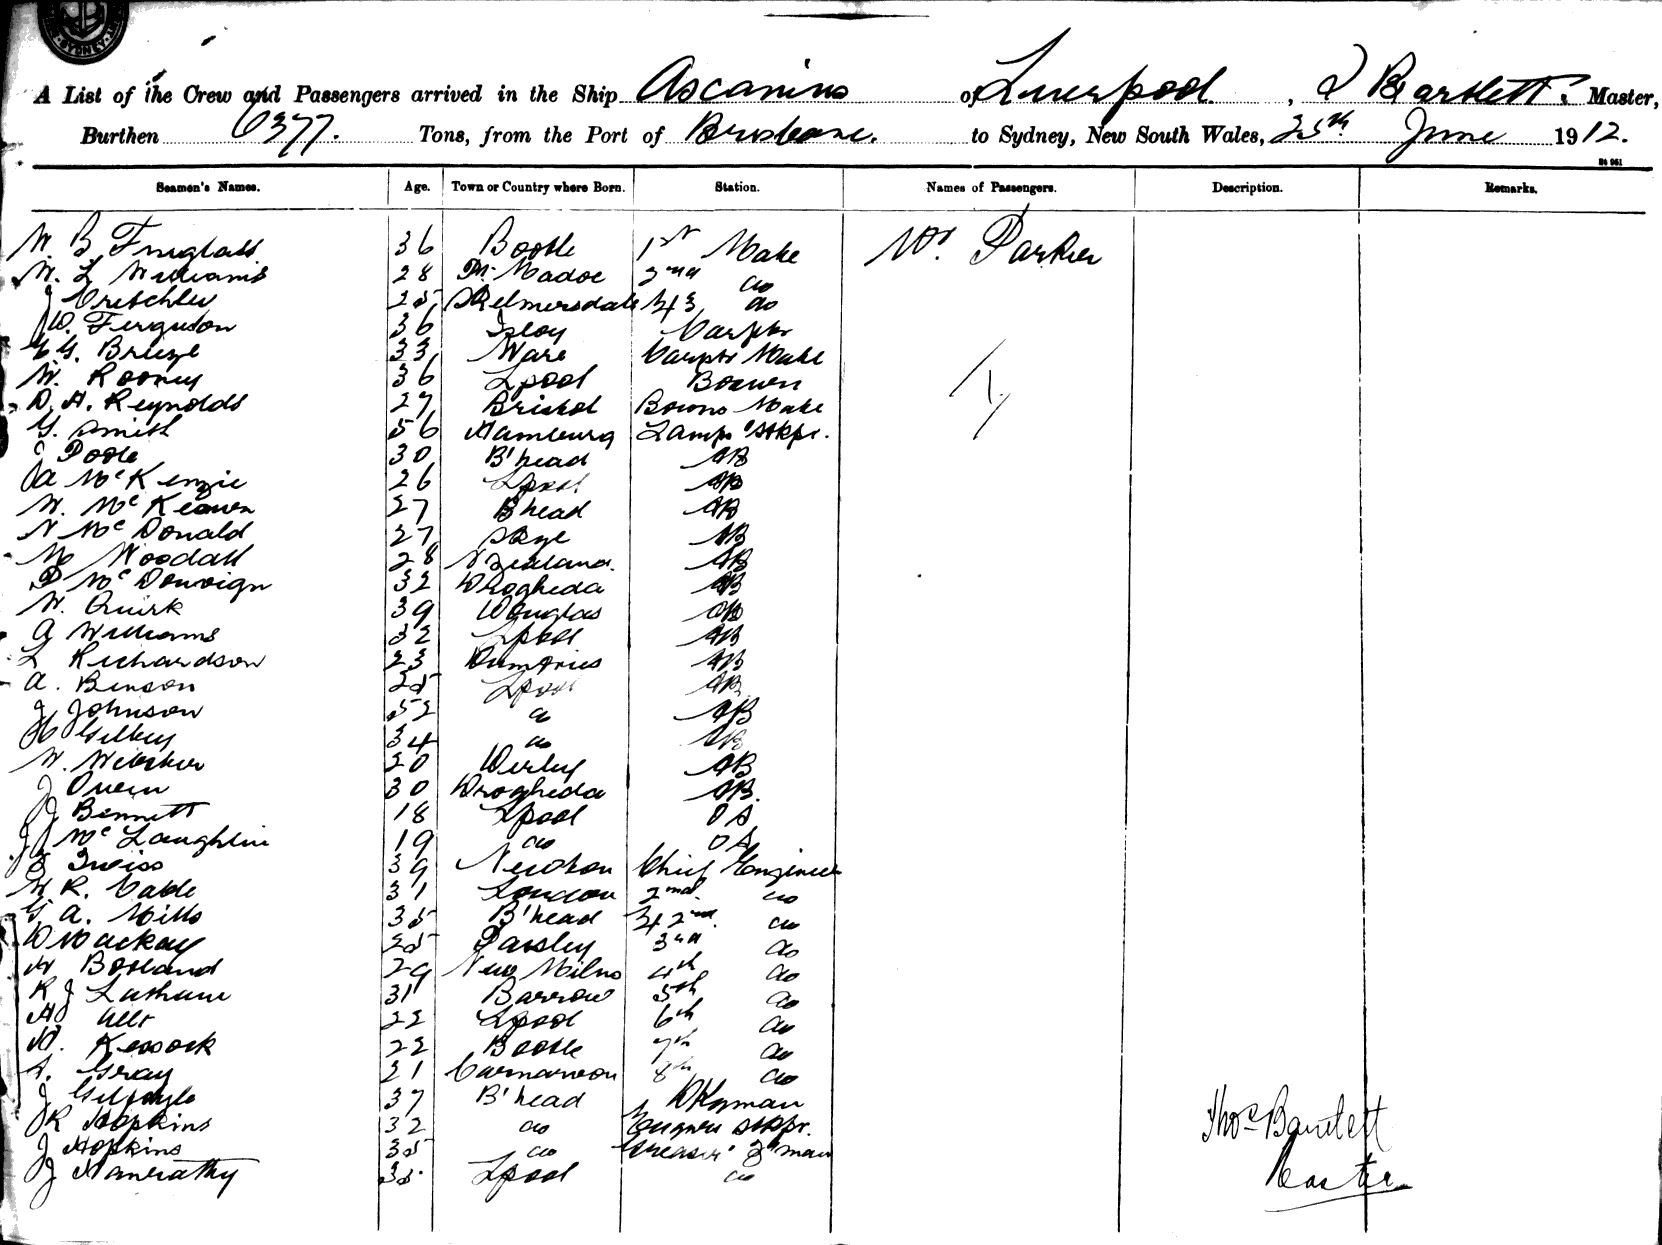 SYDNEY
A List of the Crew and Passengers arrived in the Ship Ascanius of Liverpool, T Bartlett, Master,
Burthen 6377. Tons, from the Port of Brisbane. to Sydney, New South Wales, 25th June 1912.
Seamen's Names. Age. Town or Country where Born. Station. Names of Passengers. Description. Remarks.
W. B. 36 Bootle 1st Mate Mr. Parker
W. L Williams 28 Pt. Madoc 2nd do
J Critchley 25 Skelmersdale 3 do
W. Ferguson 36 Islay Carptr
G. Breeze 33 Ware Carptr Mate
W. Rooney 36 Lpool Boswn
D. A. Reynolds 27 Bristol Bosuns Mate
G. Smith 56 Hamburg Lamps & Stkpr.
J Poole 30 B'head AB
A McKenzie 26 Lpool AB
W. McKeown 27 Bhead AB
N McDonald 27 Skye AB
M Woodall 28 N Zealand. AB
P Mc 32 Drogheda AB
W. Quirk 39 Douglas AB
A Williams 32 Lpool AB
L Richardson 23 Dumfries AB
A. Benson 25 Lpool AB
J Johnson 52 do AB
H Gilbey 34 do AB
W. Webster 20 Derby AB
J Owen 30 Drogheda AB.
J Bennett 18 Lpool OS
J McLaughlin 19 do OS
Sweiss 39 Newton Chief Engineer
W R. Cable 31 London 2nd do
G. A. Mills 35 B'head 2nd. do
D Mackay 25 Paisley 3rd do
W Borland 29 New Milns 4th do
R J Latham 31 Barrow 5th do
22 Lpool 6th do
W. Kessock 22 Bootle 7th do
Gray 21 Carnarvon 8th do
J Gilfoyle 37 B'head Dkyman
R Hopkins 32 do Engnrs Stkpr.
J Hopkins 35 do Greaser & F'man
J Hanrathy 35 Lpool do
Thos Bartlett
Master